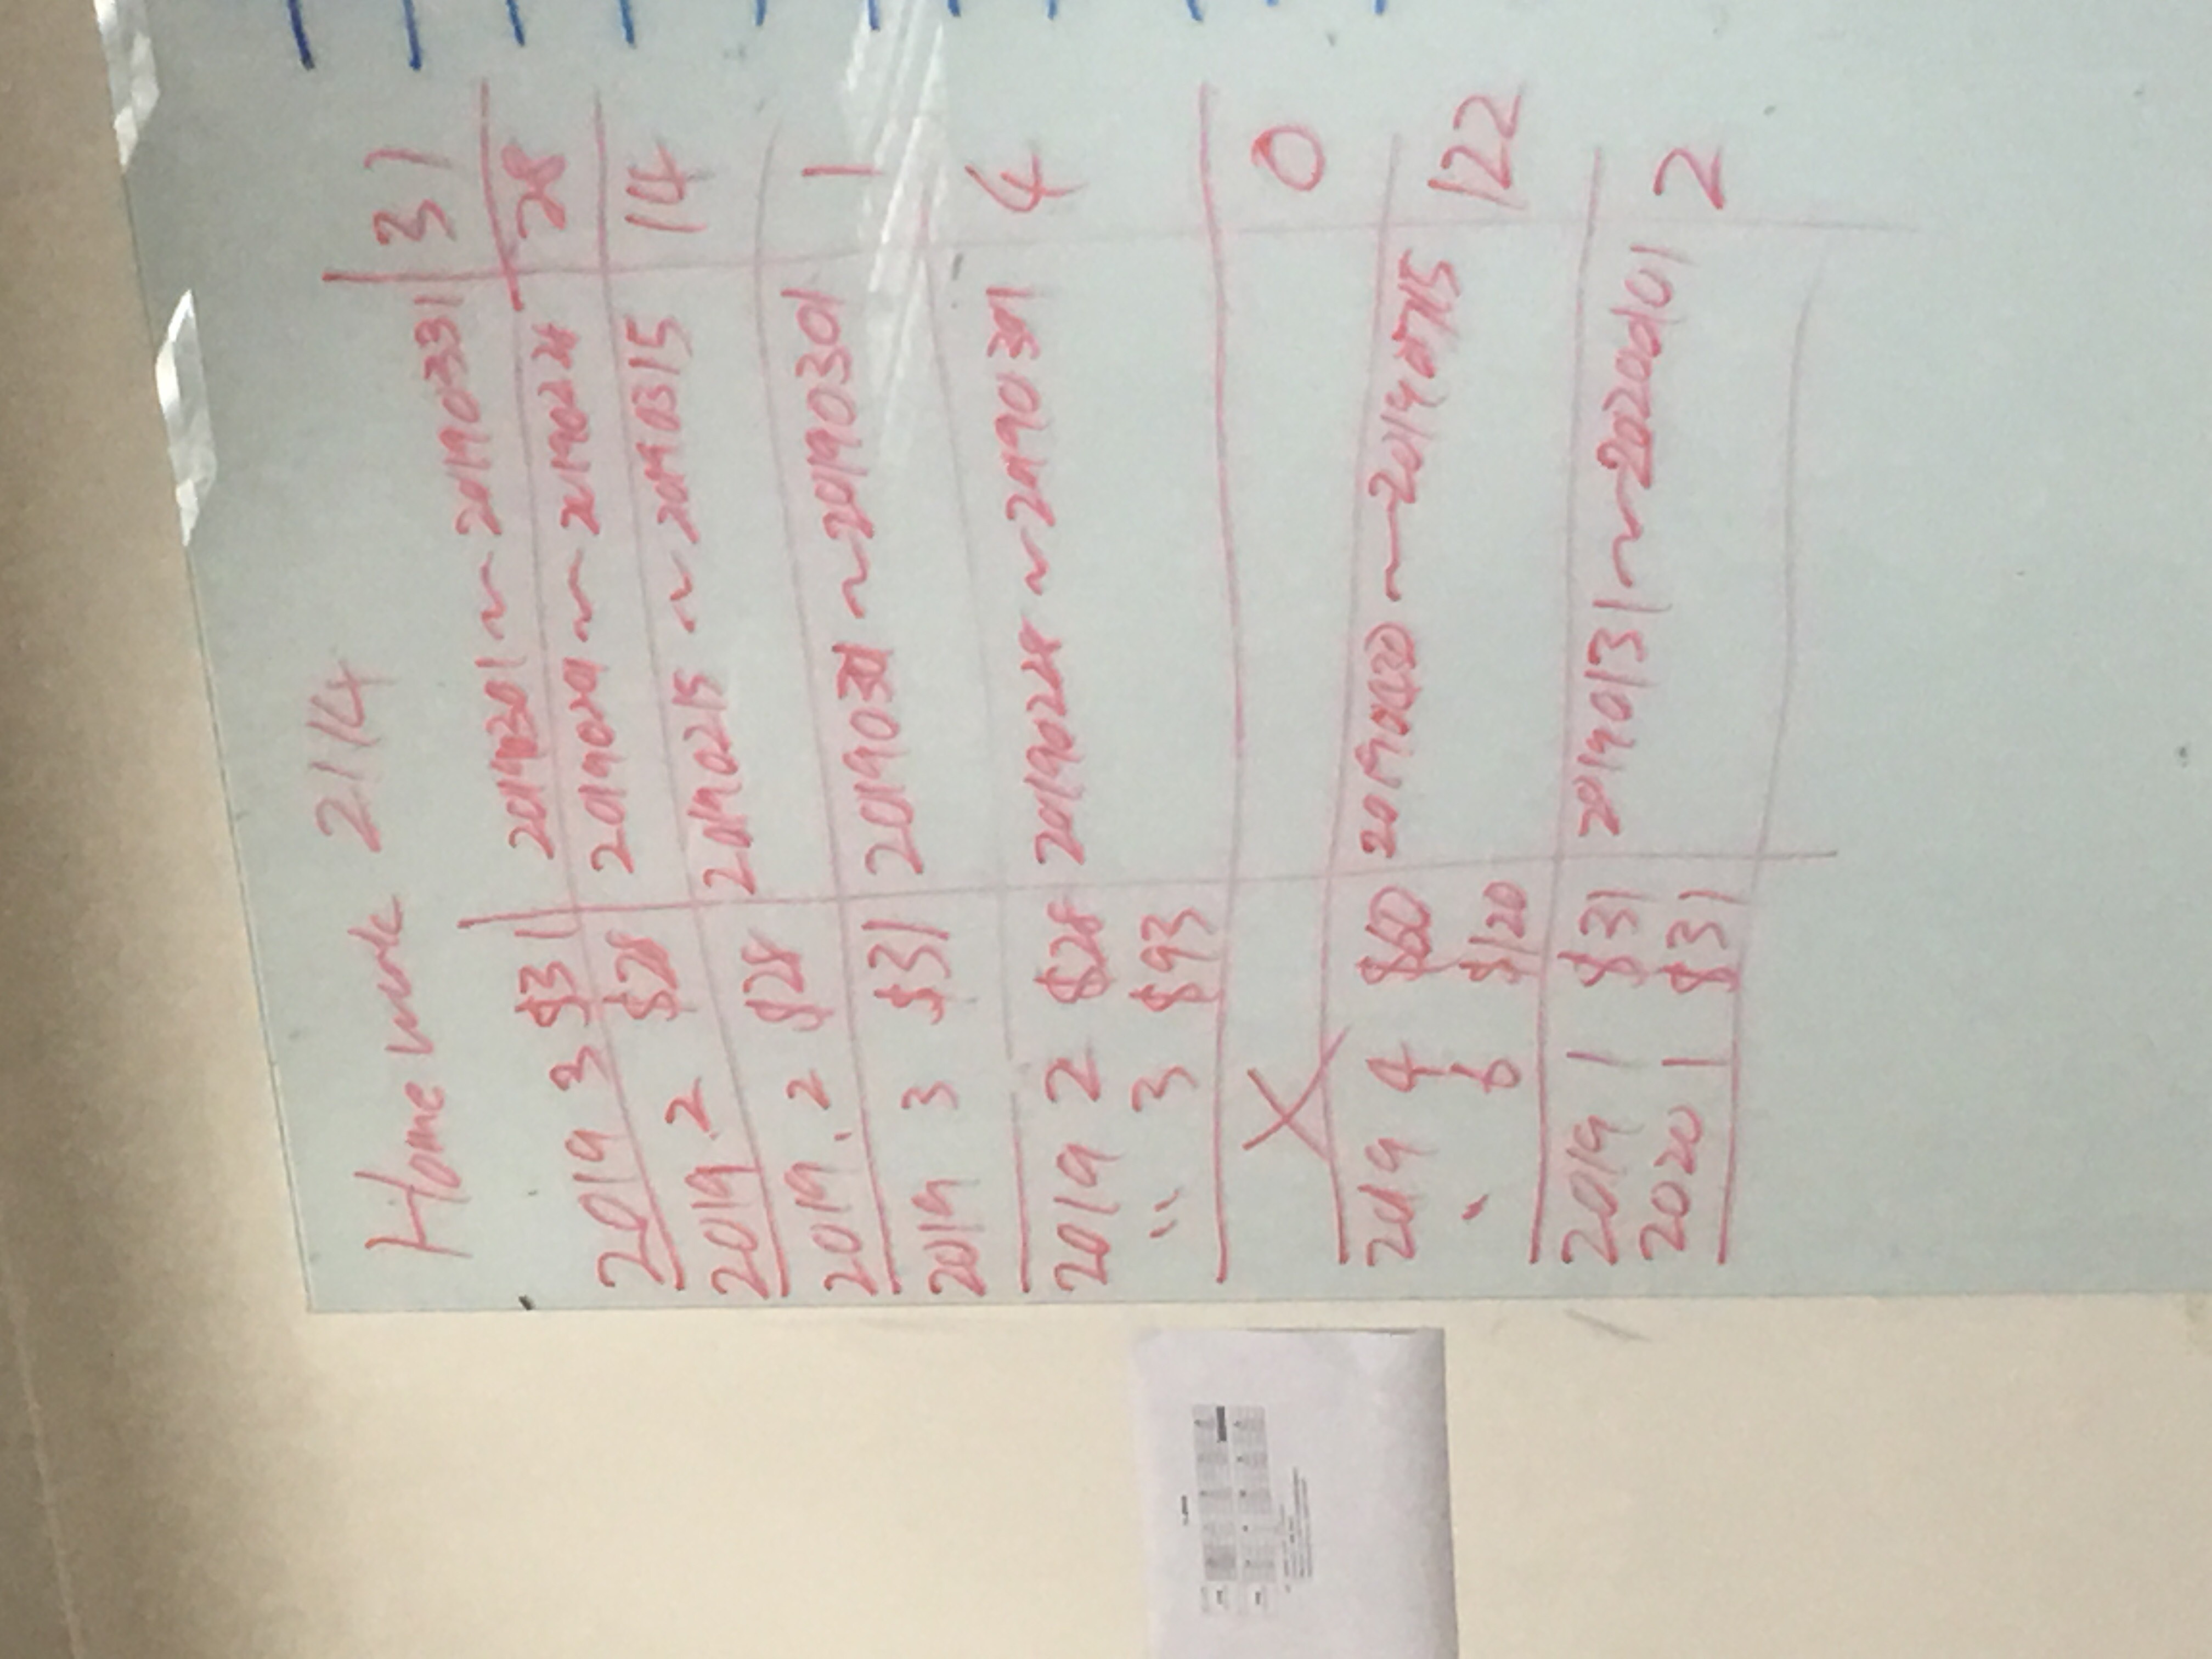 Homework 2114
2019 3 $31 20190301 ~ 20190331 31
2019.2 $28 20190201 ~ 20190228 28
2019.2 $28 20190215 ~ 20190315 14
2019 3 $31 20190301 ~ 20190301 1
2019 2 $28 20190228 ~ 20190301 4
" 3 $93
X 0
2019 4 $60 20190430 ~ 20190715 122
" 6 $120
2019 1 $31 20190131 ~ 20200101 2
2020 1 $31